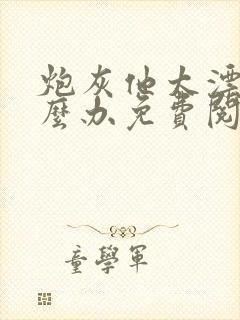 炮灰他太漂
麼办免費閱
童學軍